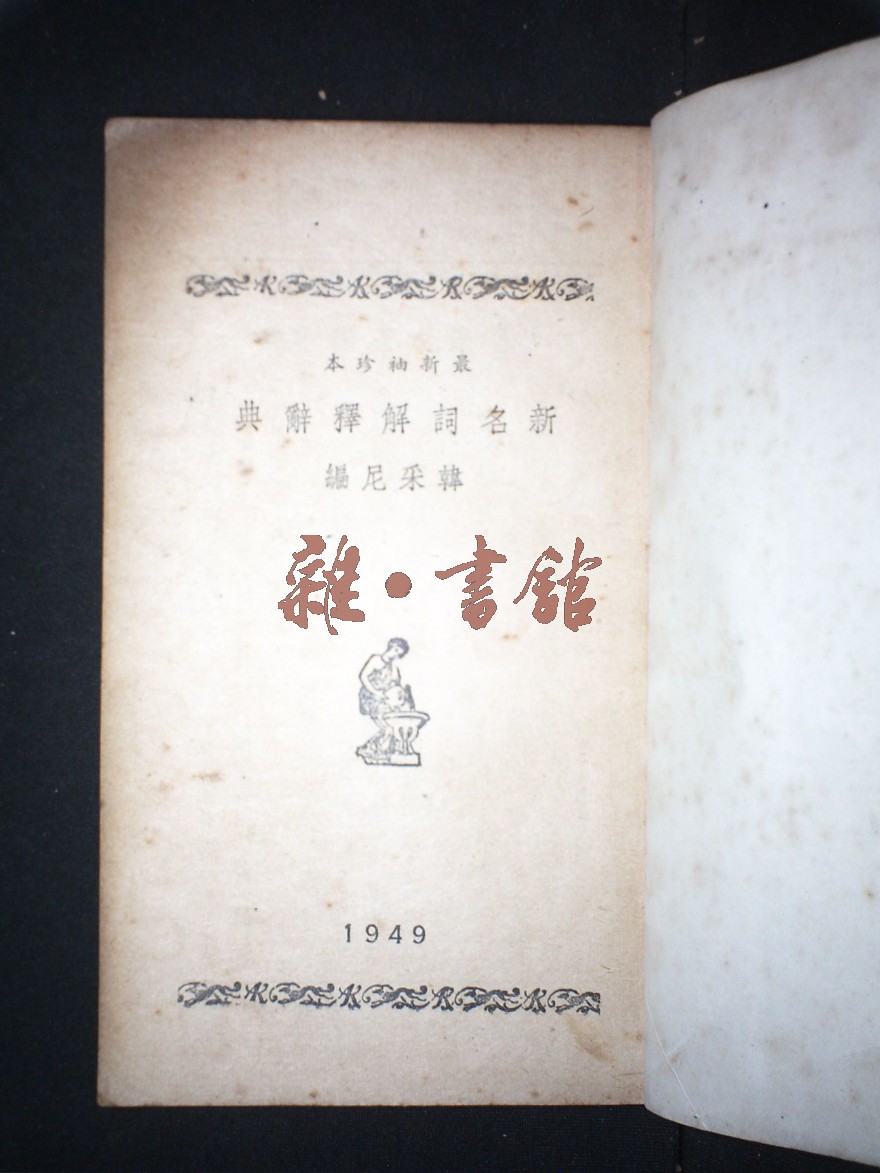 最新袖珍本
新名詞解釋辭典
韓采尼編
雜·書館
1949